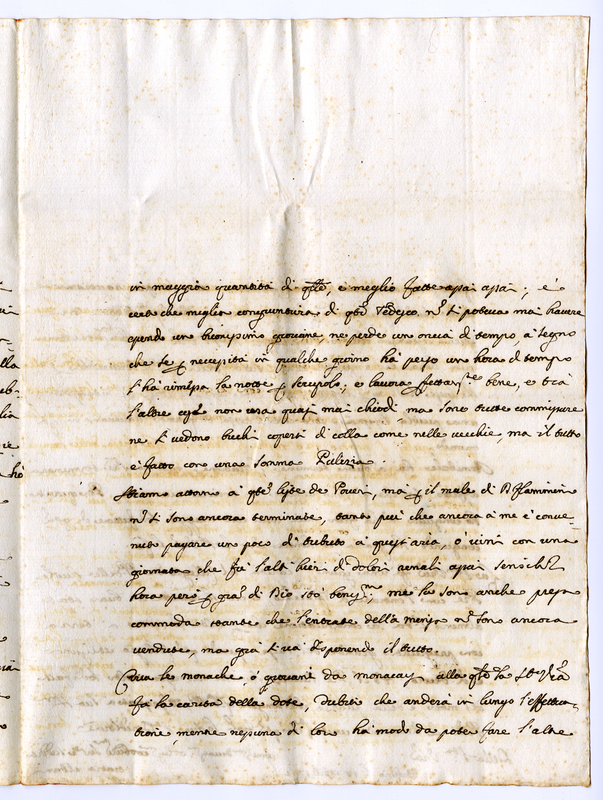 in maggior quantità di qsto, e meglio fatte assai assai; è
certo che miglior congiuntura di qto Tedesco nō si poteva mai havere
essendo un bonissimo giovane, ne perde un oncia di tempo a segno
che se p necessità in qualche giorno hà perso un hora di tempo
l'hà rimessa la notte p scrupolo; e lavora bene, e trà
l'altre cose non usa quasi mai chiodi, ma sono tutte commissure
ne si vedono buchi coperti di colla come nelle vecchie, ma il tutto
è fatto con una somma Pulizia.
Stiamo attorno à qte liste de Poveri, ma p il male di B Flaminin
nō si sono ancora terminate, tanto più che ancora à me è conve-
nuto pagare un poco di tributo à quest'aria, ò vini con una
giornata che fù l'altr hieri di dolori renali assai sensibili
hora però p gra di Dio stò beniss.mo; me la sono anche presa
commoda stante che l'entrate della mensa nō sono ancora
vendute, ma già si và disponendo il tutto.
Circa le monache, ò giovani da monacarsi alle qli la
fà la carità della dote, dubito che anderà in lungo l'effettua-
tione, mentre nessuna di loro hà modo da poter fare l'altre